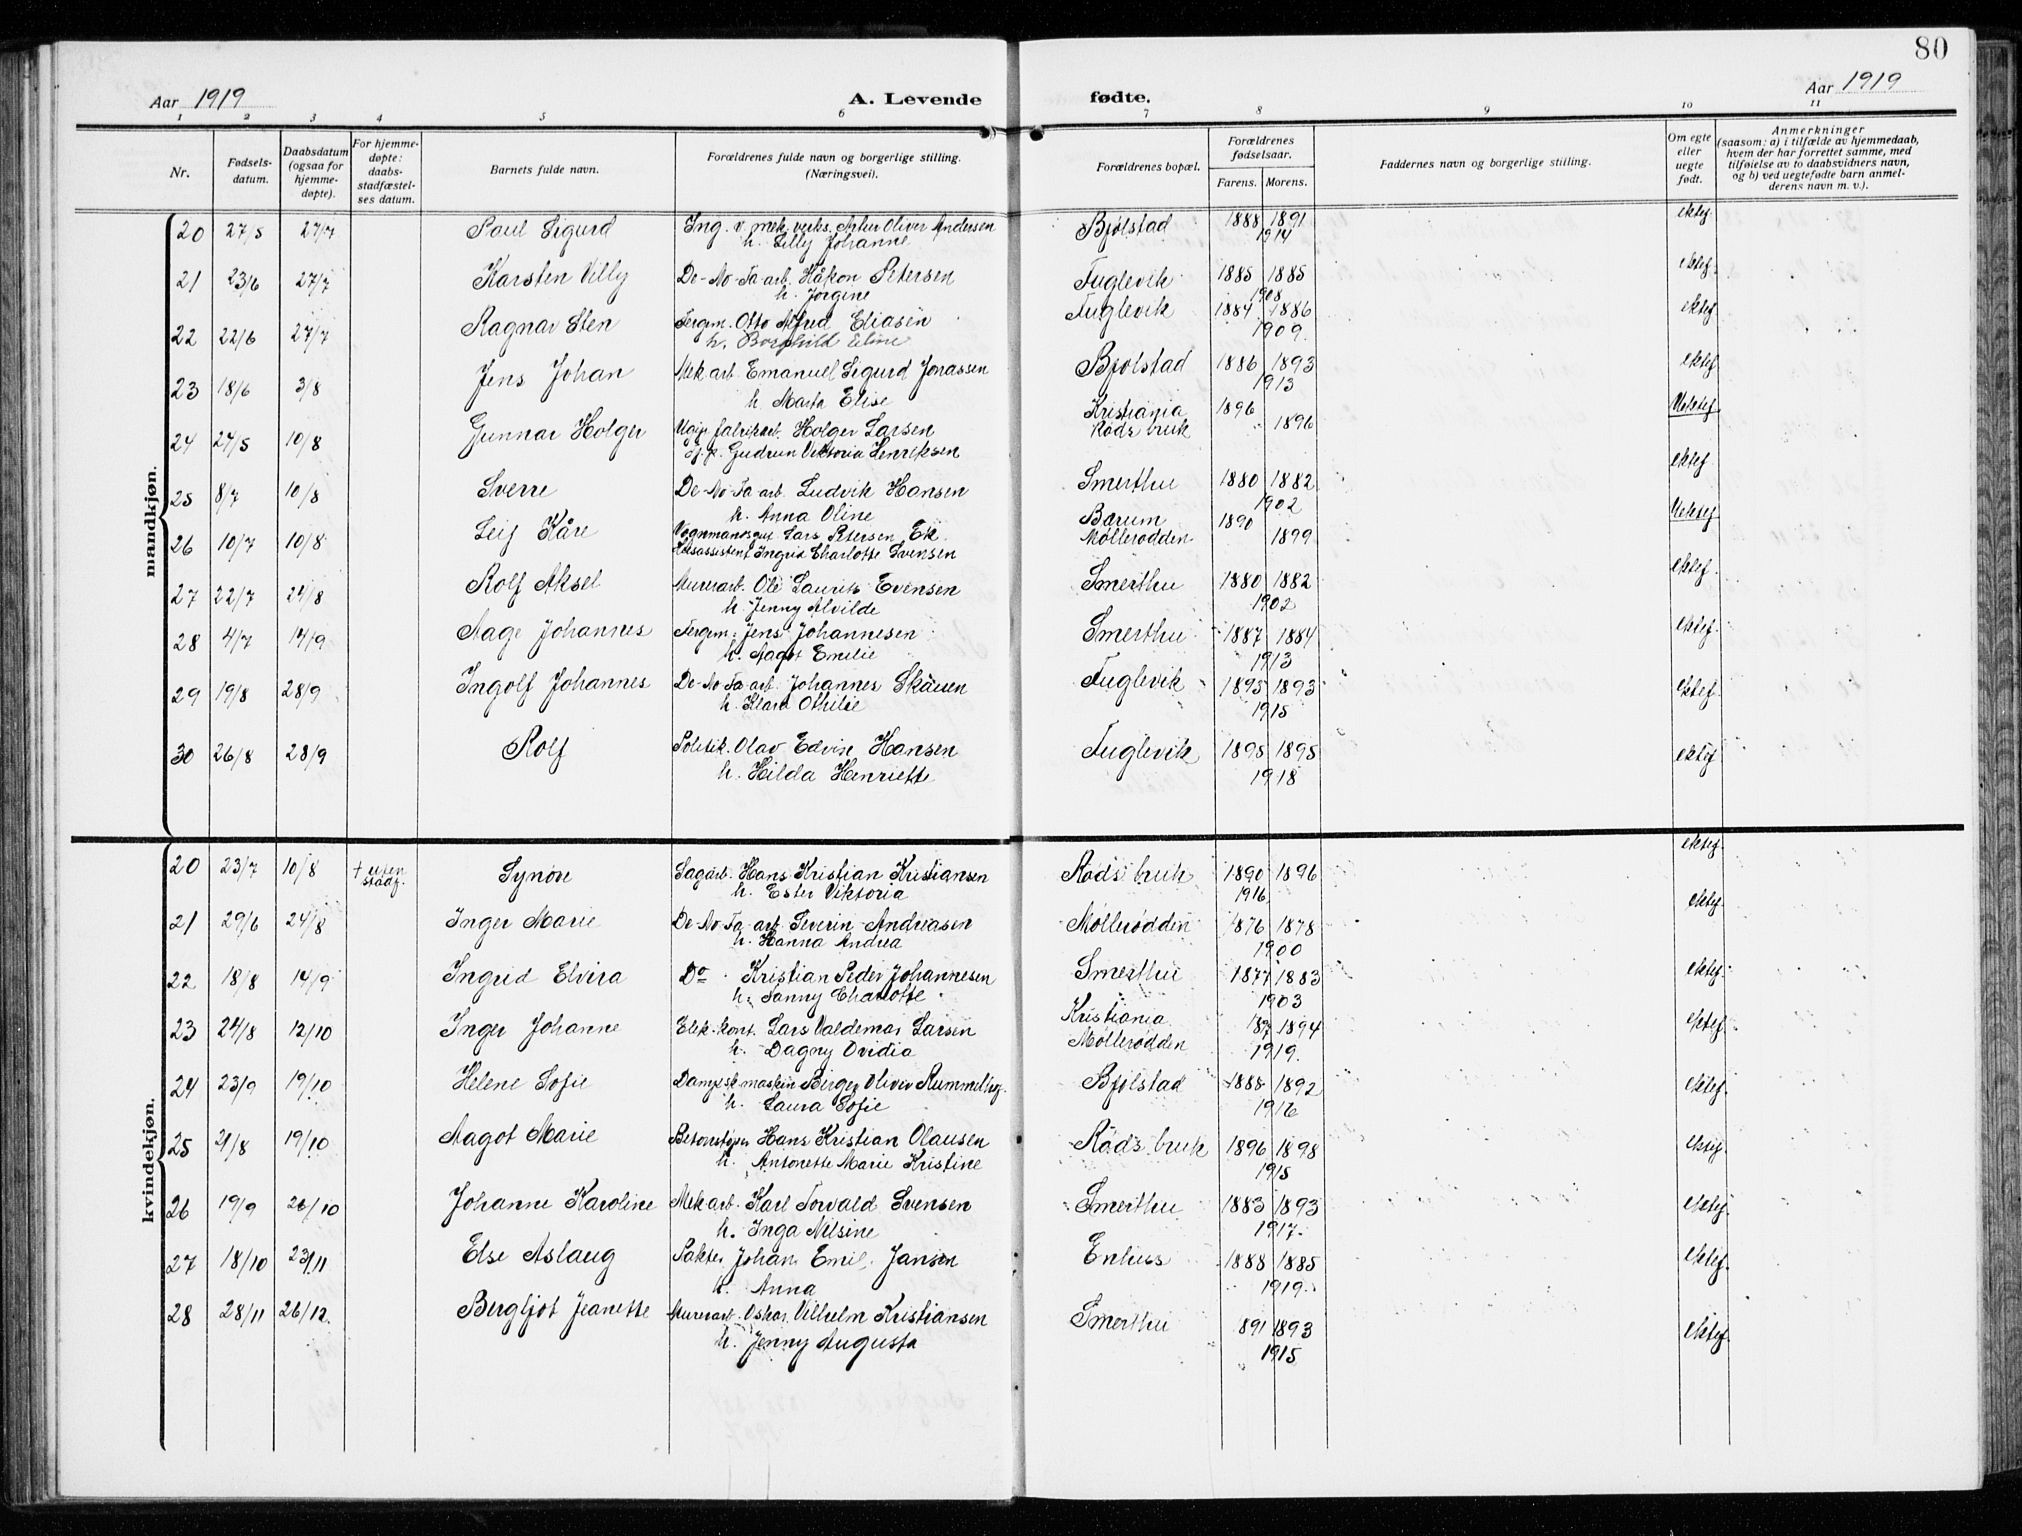 80
Aar 1919 A. Levende fødte. Aar 1919
1 2 3 4 5 6 7 8 9 10 11
Nr. Fødsels-datum. Daabsdatum (ogsaa for hjemme-døpte). For hjemme-døpte: daabs-stadfæstel-ses datum. Barnets fulde navn. Forældrenes fulde navn og borgerlige stilling. (Næringsvei). Forældrenes bopæl. Forældrenes fødselsaar. Farens. Morens. Faddernes navn og borgerlige stilling. Om egte eller uegte født. Anmerkninger (saasom: a) i tilfælde av hjemmedaab, hvem der har forrettet samme, med tilføielse av to daabsvidners navn, og b) ved uegtefødte barn anmel-derens navn m. v.).
mandkjøn.
20 27/5 27/7 Paul Sigurd Ing. v. mek. verks. Artur Oliver Andersen Bjølstad 1888 1891 ektef.
h. Lilly Johanne 1914
21 23/6 27/7 Karsten Villy De-No-Fa arb. Håkon Petersen Fuglevik 1885 1885 ektef.
h. Jørgine 1908
22 22/6 27/7 Ragnar Sten Fergm. Otto Alfred Eliasen Fuglevik 1884 1886 ektef
h. Borghild Eline 1909.
23 18/6 3/8 Jens Johan Mek arb. Emanuel Sigurd Jonassen Bjølstad 1886 1893 ektef
h. Marta Elise 1913
24 27/5 10/8 Gunnar Holger Ugip. fabrikarb. Holger Larsen Kristiania 1896 Uektef
Gudrun Viktoria Henriksen Røds bruk 1896
25 8/7 10/8 Sverre De-No-Fa arb. Ludvik Hansen Smerthu 1880 1882 ektef
h. Anna Oline 1902
26 10/7 10/8 Leif Kåre Lars Petersen Ek. Bærum 1890 Uektef
Ingrid Charlotte Svensen Møllerodden 1899
27 22/7 24/8 Rolf Aksel Murerarb. Ole Laurits Evensen Smerthu 1880 1882 ektef.
h. Jenny Alvilde 1902
28 4/7 14/9 Aage Johannes Fergm. Jens Johannesen Smerthu 1887 1884 ektef
h. Aagot Emelie 1913
29 19/8 28/9 Ingolf Johannes De-No-Fa arb. Johannes Skauen Fuglevik 1893 1893 ektef
h. Klara Othilie 1915
30 26/8 28/9 Rolf Politik. Olav Edvin Hansen Fuglevik 1895 1895 ektef
h. Hilda Henriette 1918
kvindekjøn.
20 23/7 10/8 + uten stadf. Synøve Sagarb. Hans Kristian Kristiansen Røds bruk 1890 1896 ektef
h. Ester Viktoria 1916
21 29/6 24/8 Inger Marie De-No-Fa arb. Severin Andreasen Møllerodden 1876 1878 ektef.
h. Hanna Andrea 1900
22 18/8 14/9 Ingrid Elvira Do Kristian Peder Johannesen Smerthu 1877 1883 ektef.
h. Fanny Charlotte 1903
23 24/8 12/10 Inger Johanne Elek. kont. Lars Valdemar Larsen Kristiania 1894 ektef.
h. Dagny Ovidia Møllerodden 1919.
24 23/9 19/10 Helene Sofie Dampsk. maskin Birger Oliver Rummelhof. Bjølstad 1888 1892 ektef.
h. Laura Sofie 1916
25 21/8 19/10 Aagot Marie Hans Kristian Olausen Røds bruk 1896 1898 ektef.
h. Antonette Marie Kristine 1915
26 19/9 26/10 Johanne Karoline Mek arb. Karl Torvald Svensen Smerthu 1883 1893 ektef.
h. Inga Nilsine 1917.
27 18/10 23/11 Else Aslaug Pakter Johan Emil Jansen Enhus 1888 1885 ektef.
h. Anna 1919.
28 28/11 26/12. Bergljot Jeanette Murerarb. Oskar Vilhelm Kristiansen Smerthu 891 1893 ektef.
h. Jenny Augusta 1915